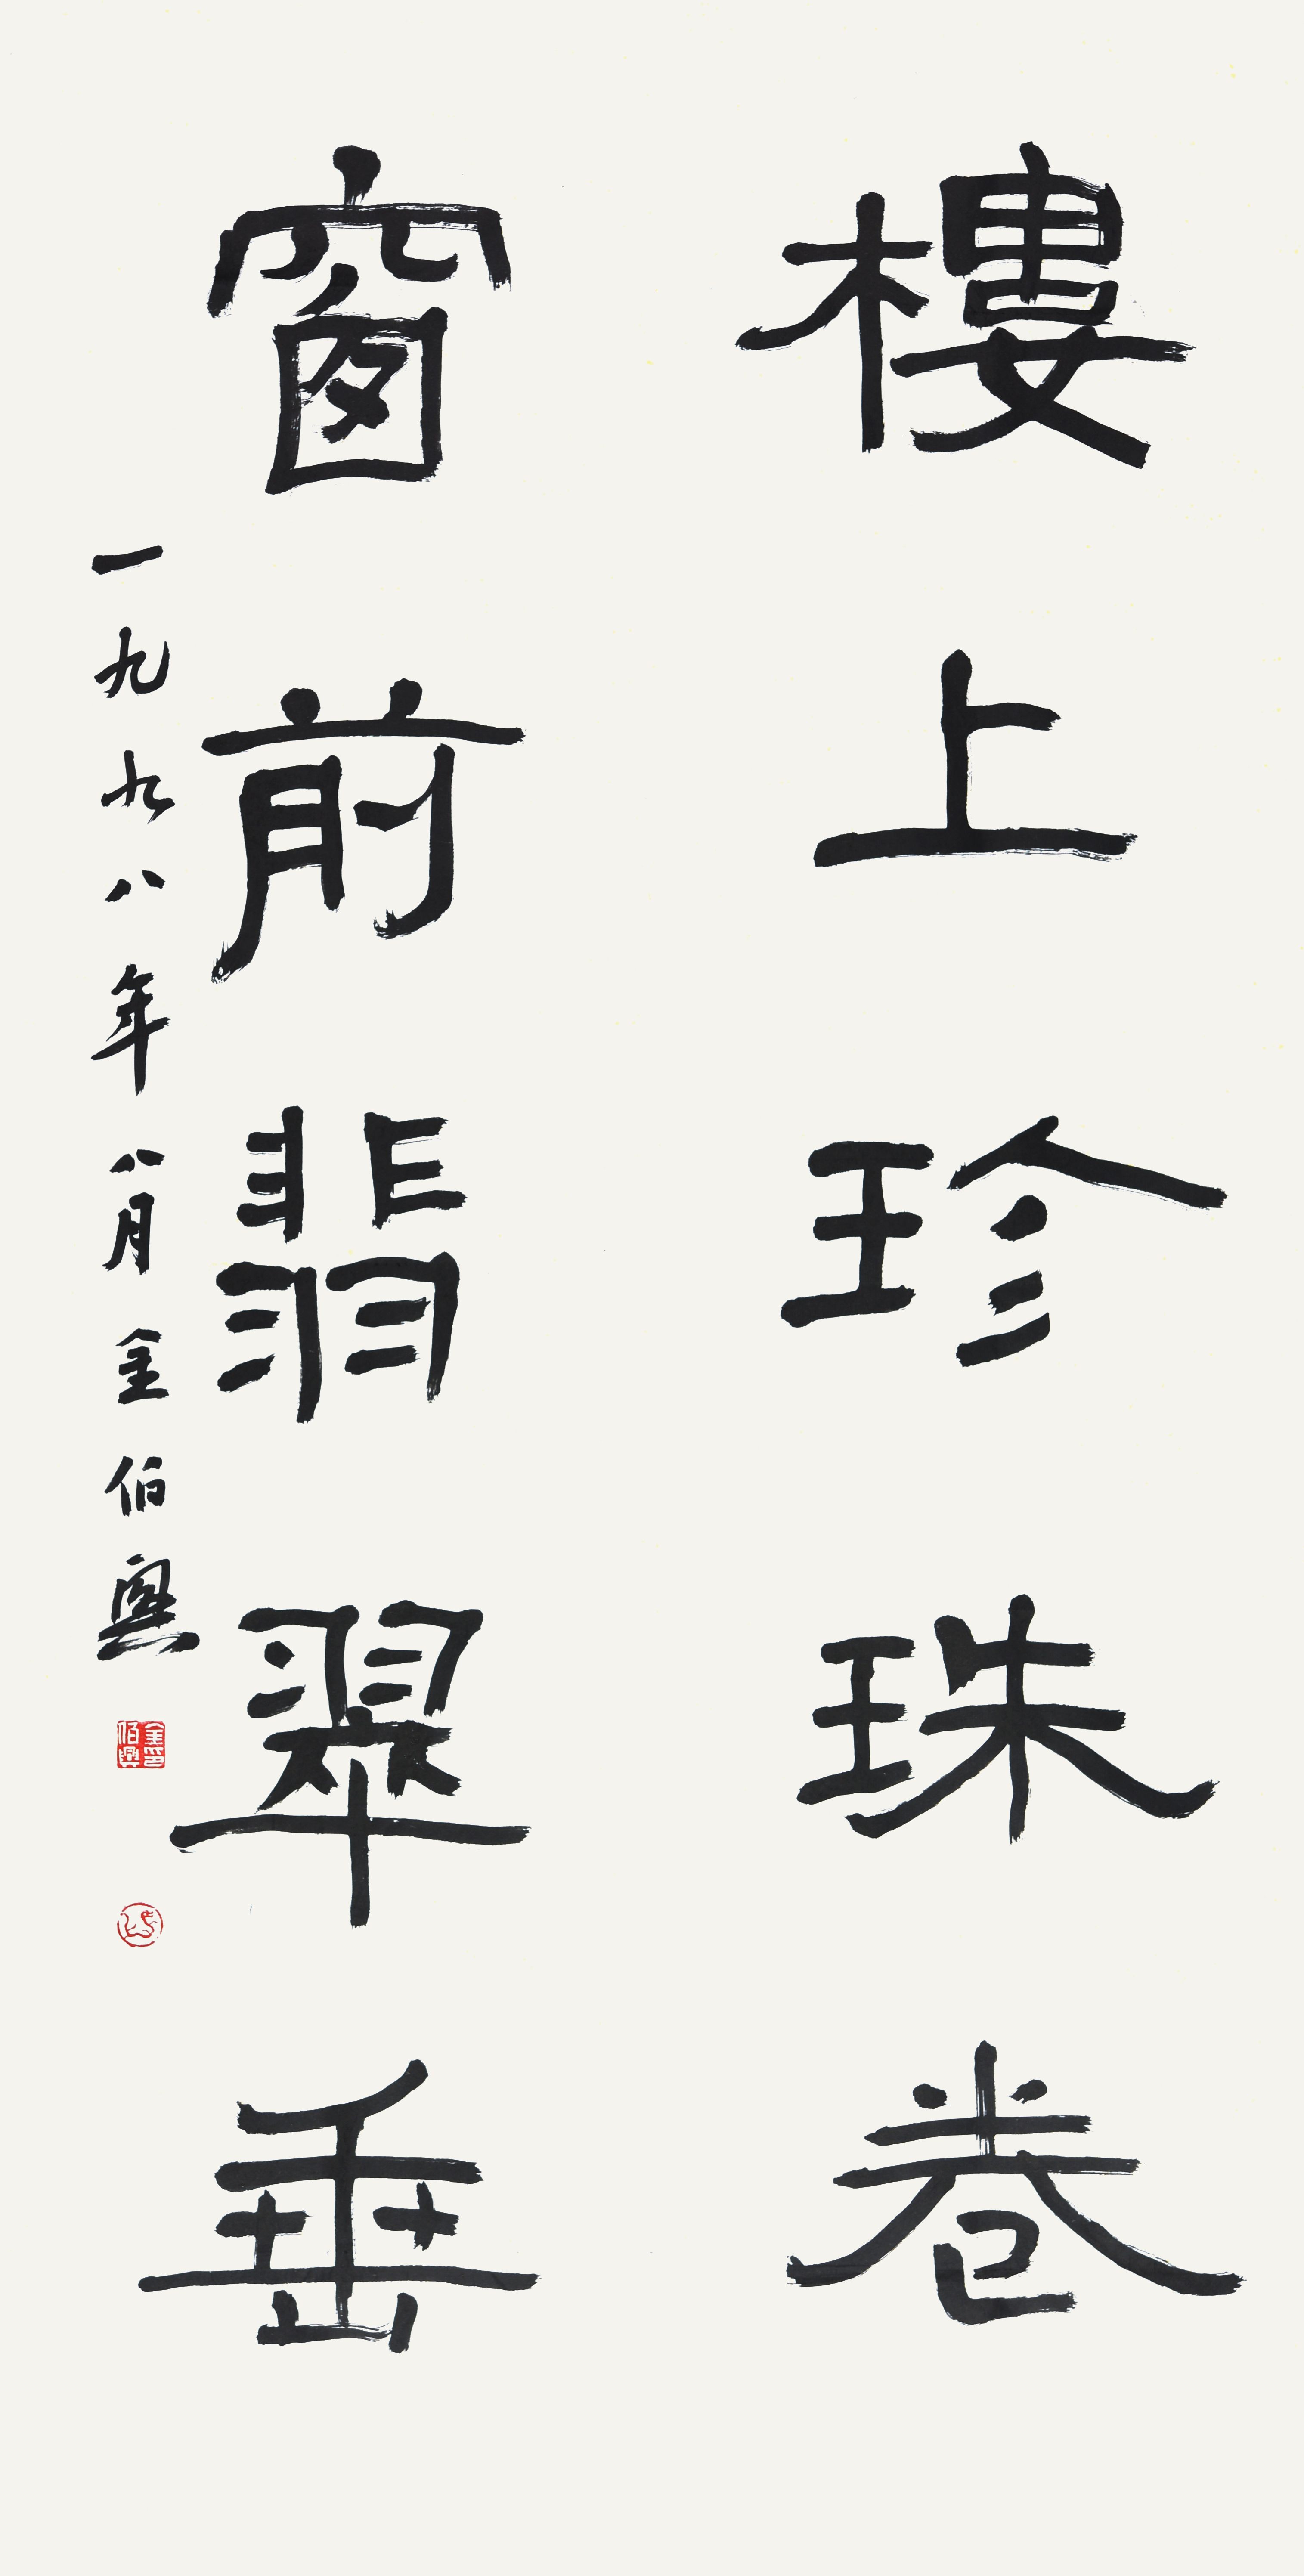 樓上珍珠卷
窗前翡翠垂
一九九八年八月金伯興
金伯興印